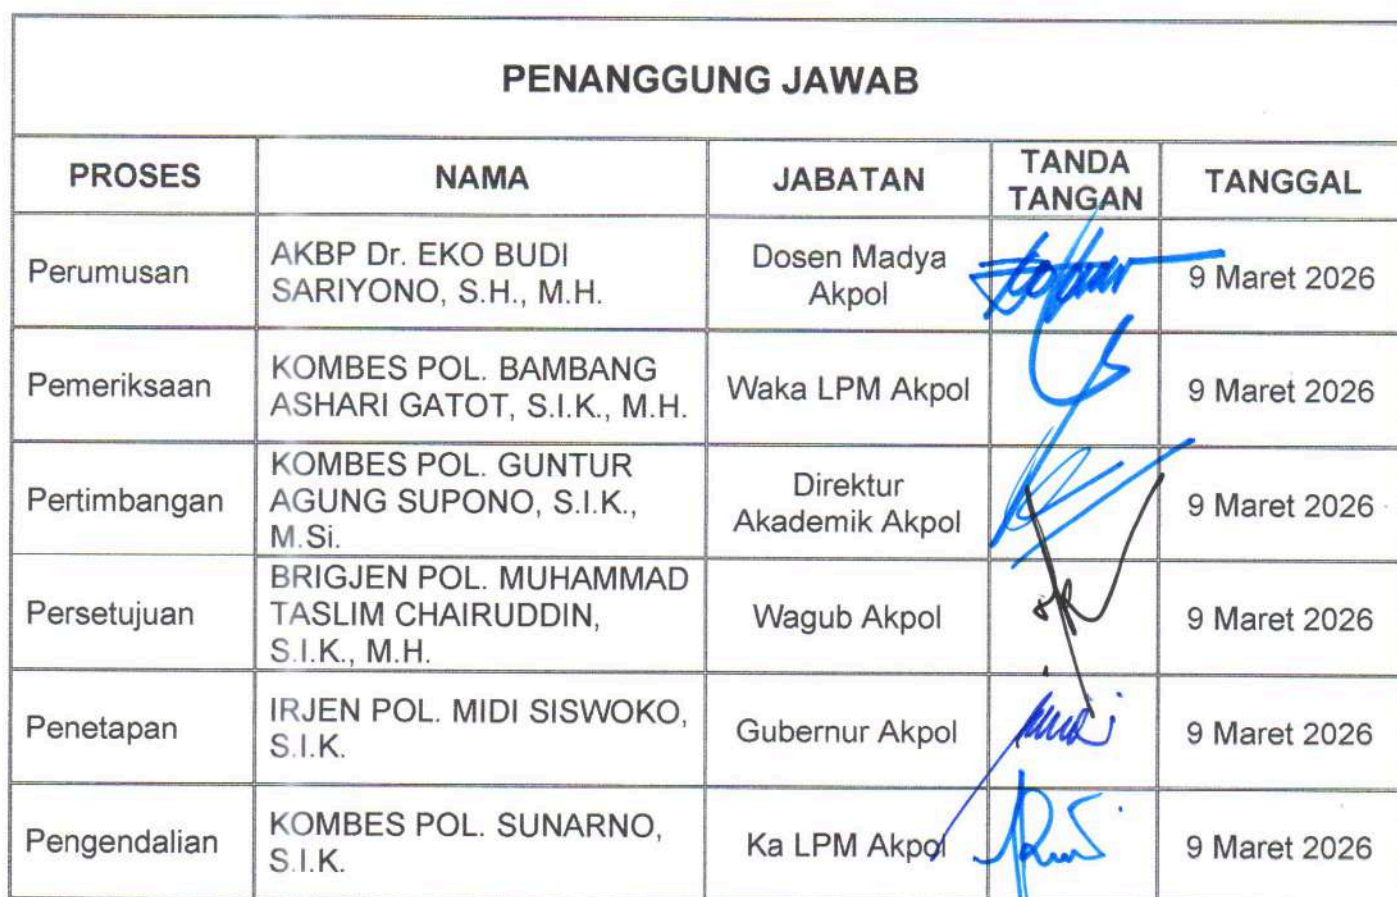 PENANGGUNG JAWAB
PROSES NAMA JABATAN TANDA TANGAN TANGGAL
Perumusan
AKBP Dr. EKO BUDI
SARIYONO, S.H., M.H.
Dosen Madya
Akpol
9 Maret 2026
Pemeriksaan
KOMBES POL. BAMBANG
ASHARI GATOT, S.I.K., M.H.
Waka LPM Akpol
9 Maret 2026
Pertimbangan
KOMBES POL. GUNTUR
AGUNG SUPONO, S.I.K.,
M.Si.
Direktur
Akademik Akpol
9 Maret 2026
Persetujuan
BRIGJEN POL. MUHAMMAD
TASLIM CHAIRUDDIN,
S.I.K., M.H.
Wagub Akpol
9 Maret 2026
Penetapan
IRJEN POL. MIDI SISWOKO,
S.I.K.
Gubernur Akpol
9 Maret 2026
Pengendalian
KOMBES POL. SUNARNO,
S.I.K.
Ka LPM Akpol
9 Maret 2026